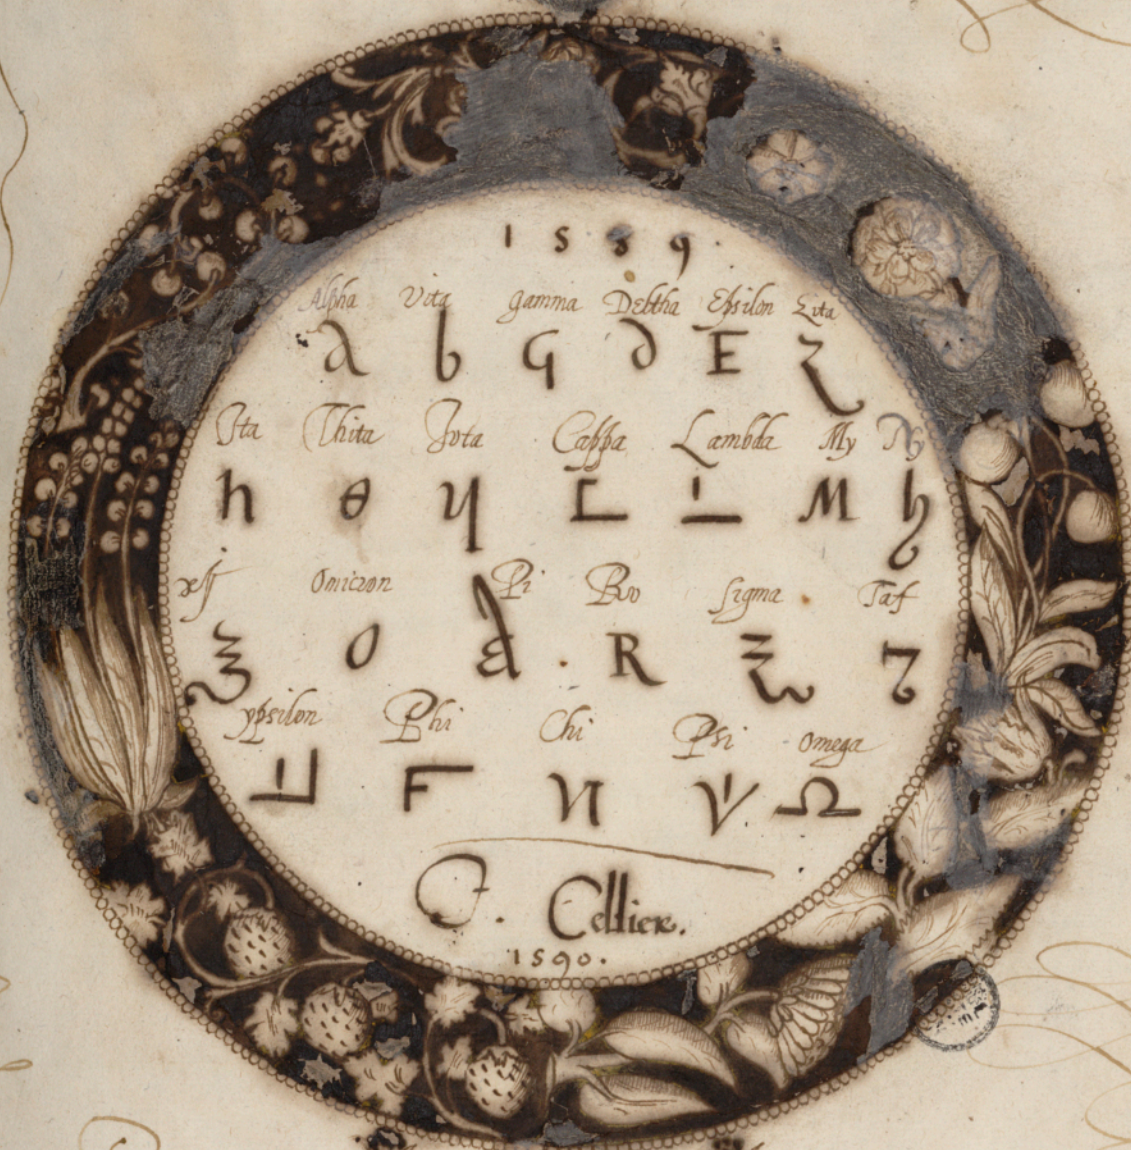 1589.
Alpha Vita gamma Deltha Epsilon Zita
a b G d E z
Ita Thita Iota Cappa Lambda My Ny
h θ y M
xſj Omicron Pi Ro ſigma Taf
o R
ypsilon Phi Chi Psi Omega
F Ω
J. Cellier.
1590.